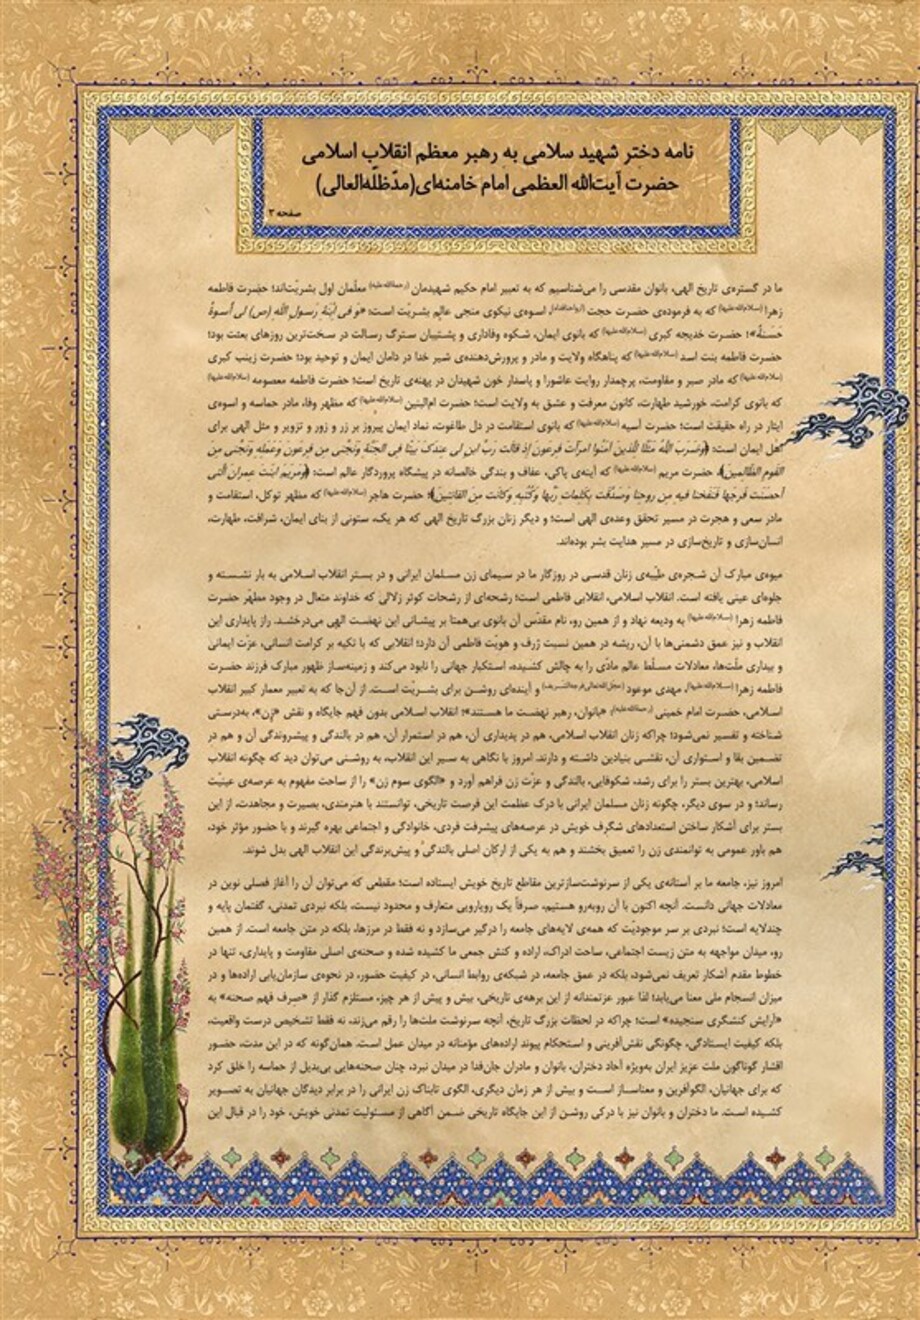 نامه دختر شهید سلامی به رهبر معظم انقلاب اسلامی
حضرت آیت‌الله العظمی امام خامنه‌ای(مدّظلّه‌العالی)
صفحه ۳
ما در گستره‌ی تاریخ الهی، بانوان مقدسی را می‌شناسیم که به تعبیر امام حکیم شهیدمان (رحمةالله‌علیه) معلّمان اول بشریّت‌اند؛ حضرت فاطمه
زهرا (سلام‌الله‌علیها) که به فرموده‌ی حضرت حجت (ارواحنافداه)، اسوه‌ی نیکوی منجی عالم بشریّت است: «وَ فی اِبنَةِ رَسولِ اللّهِ (ص) لی اُسوَةٌ
حَسَنَةٌ»؛ حضرت خدیجه کبری (سلام‌الله‌علیها) که بانوی ایمان، شکوه وفاداری و پشتیبان سترگ رسالت در سخت‌ترین روزهای بعثت بود؛
حضرت فاطمه بنت اسد (سلام‌الله‌علیها) که پناهگاه ولایت و مادر و پرورش‌دهنده‌ی شیر خدا در دامان ایمان و توحید بود؛ حضرت زینب کبری
(سلام‌الله‌علیها) که مادر صبر و مقاومت، پرچمدار روایت عاشورا و پاسدار خون شهیدان در پهنه‌ی تاریخ است؛ حضرت فاطمه معصومه (سلام‌الله‌علیها)
که بانوی کرامت، خورشید طهارت، کانون معرفت و عشق به ولایت است؛ حضرت ام‌البنین (سلام‌الله‌علیها) که مظهر وفا، مادر حماسه و اسوه‌ی
ایثار در راه حقیقت است؛ حضرت آسیه (سلام‌الله‌علیها) که بانوی استقامت در دل طاغوت، نماد ایمان پیروز بر زر و زور و تزویر و مثل الهی برای
اهل ایمان است: ﴿وَضَرَبَ اللَّهُ مَثَلًا لِلَّذِینَ آمَنُوا امرَأَتَ فِرعَونَ إِذ قالَت رَبِّ ابنِ لی عِندَکَ بَیتًا فِی الجَنَّةِ وَنَجِّنی مِن فِرعَونَ وَعَمَلِهِ وَنَجِّنی مِنَ
القَومِ الظّالِمینَ﴾، حضرت مریم (سلام‌الله‌علیها) که آینه‌ی پاکی، عفاف و بندگی خالصانه در پیشگاه پروردگار عالم است: ﴿وَمَریَمَ ابنَتَ عِمرانَ الَّتی
أَحصَنَت فَرجَها فَنَفَخنا فیهِ مِن روحِنا وَصَدَّقَت بِکَلِماتِ رَبِّها وَکُتُبِهِ وَکانَت مِنَ القانِتینَ﴾؛ حضرت هاجر (سلام‌الله‌علیها) که مظهر توکل، استقامت و
مادر سعی و هجرت در مسیر تحقق وعده‌ی الهی است؛ و دیگر زنان بزرگ تاریخ الهی که هر یک، ستونی از بنای ایمان، شرافت، طهارت،
انسان‌سازی و تاریخ‌سازی در مسیر هدایت بشر بوده‌اند.
میوه‌ی مبارک آن شجره‌ی طیّبه‌ی زنان قدسی در روزگار ما در سیمای زن مسلمان ایرانی و در بستر انقلاب اسلامی به بار نشسته و
جلوه‌ای عینی یافته است. انقلاب اسلامی، انقلابی فاطمی است؛ رشحه‌ای از رشحات کوثر زلالی که خداوند متعال در وجود مطهّر حضرت
فاطمه زهرا (سلام‌الله‌علیها) به ودیعه نهاد و از همین رو، نام مقدّس آن بانوی بی‌همتا بر پیشانی این نهضت الهی می‌درخشد. راز پایداری این
انقلاب و نیز عمق دشمنی‌ها با آن، ریشه در همین نسبت ژرف و هویت فاطمی آن دارد؛ انقلابی که با تکیه بر کرامت انسانی، عزت ایمانی
و بیداری ملّت‌ها، معادلات مسلّط عالم مادّی را به چالش کشیده، استکبار جهانی را نابود می‌کند و زمینه‌ساز ظهور مبارک فرزند حضرت
فاطمه زهرا (سلام‌الله‌علیها)، مهدی موعود (عجّل‌الله‌تعالی‌فرجه‌الشریف) و آینده‌ای روشن برای بشریّت است. از آن‌جا که به تعبیر معمار کبیر انقلاب
اسلامی، حضرت امام خمینی (رحمةالله‌علیه)، «بانوان، رهبر نهضت ما هستند»؛ انقلاب اسلامی بدون فهم جایگاه و نقش «زن»، به‌درستی
شناخته و تفسیر نمی‌شود؛ چراکه زنان انقلاب اسلامی، هم در پدیداری آن، هم در استمرار آن، هم در بالندگی و پیشروندگی آن و هم در
تضمین بقا و استواری آن، نقشی بنیادین داشته و دارند. امروز با نگاهی به سیر این انقلاب، به روشنی می‌توان دید که چگونه انقلاب
اسلامی، بهترین بستر را برای رشد، شکوفایی، بالندگی و عزّت زن فراهم آورد و «الگوی سوم زن» را از ساحت مفهوم به عرصه‌ی عینیّت
رساند؛ و در سوی دیگر، چگونه زنان مسلمان ایرانی با درک عظمت این فرصت تاریخی، توانستند با هنرمندی، بصیرت و مجاهدت، از این
بستر برای آشکار ساختن استعدادهای شگرف خویش در عرصه‌های پیشرفت فردی، خانوادگی و اجتماعی بهره گیرند و با حضور مؤثر خود،
هم باور عمومی به توانمندی زن را تعمیق بخشند و هم به یکی از ارکان اصلی بالندگی و پیش‌برندگی این انقلاب الهی بدل شوند.
امروز نیز، جامعه ما بر آستانه‌ی یکی از سرنوشت‌سازترین مقاطع تاریخ خویش ایستاده است؛ مقطعی که می‌توان آن را آغاز فصلی نوین در
معادلات جهانی دانست. آنچه اکنون با آن روبه‌رو هستیم، صرفاً یک رویارویی متعارف و محدود نیست، بلکه نبردی تمدنی، گفتمان پایه و
چندلایه است؛ نبردی بر سر موجودیّت که همه‌ی لایه‌های جامعه را درگیر می‌سازد و نه فقط در مرزها، بلکه در متن جامعه است. از همین
رو، میدان مواجهه به متن زیست اجتماعی، ساحت ادراک، اراده و کنش جمعی ما کشیده شده و صحنه‌ی اصلی مقاومت و پایداری، تنها در
خطوط مقدم آشکار تعریف نمی‌شود، بلکه در عمق جامعه، در شبکه‌ی روابط انسانی، در کیفیت حضور، در نحوه‌ی سازمان‌یابی اراده‌ها و در
میزان انسجام ملی معنا می‌یابد؛ لذا عبور عزتمندانه از این برهه‌ی تاریخی، بیش و پیش از هر چیز، مستلزم گذار از «صرف فهم صحنه» به
«آرایش کنشگری سنجیده» است؛ چراکه در لحظات بزرگ تاریخ، آنچه سرنوشت ملت‌ها را رقم می‌زند، نه فقط تشخیص درست واقعیت،
بلکه کیفیت ایستادگی، چگونگی نقش‌آفرینی و استحکام پیوند اراده‌های مؤمنانه در میدان عمل است. همان‌گونه که در این مدت، حضور
اقشار گوناگون ملت عزیز ایران به‌ویژه آحاد دختران، بانوان و مادران جان‌فدا در میدان نبرد، چنان صحنه‌هایی بی‌بدیل از حماسه را خلق کرد
که برای جهانیان، الگوآفرین و معناساز است و بیش از هر زمان دیگری، الگوی تابناک زن ایرانی را در برابر دیدگان جهانیان به تصویر
کشیده است. ما دختران و بانوان نیز با درکی روشن از این جایگاه تاریخی ضمن آگاهی از مسئولیت تمدنی خویش، خود را در قبال این